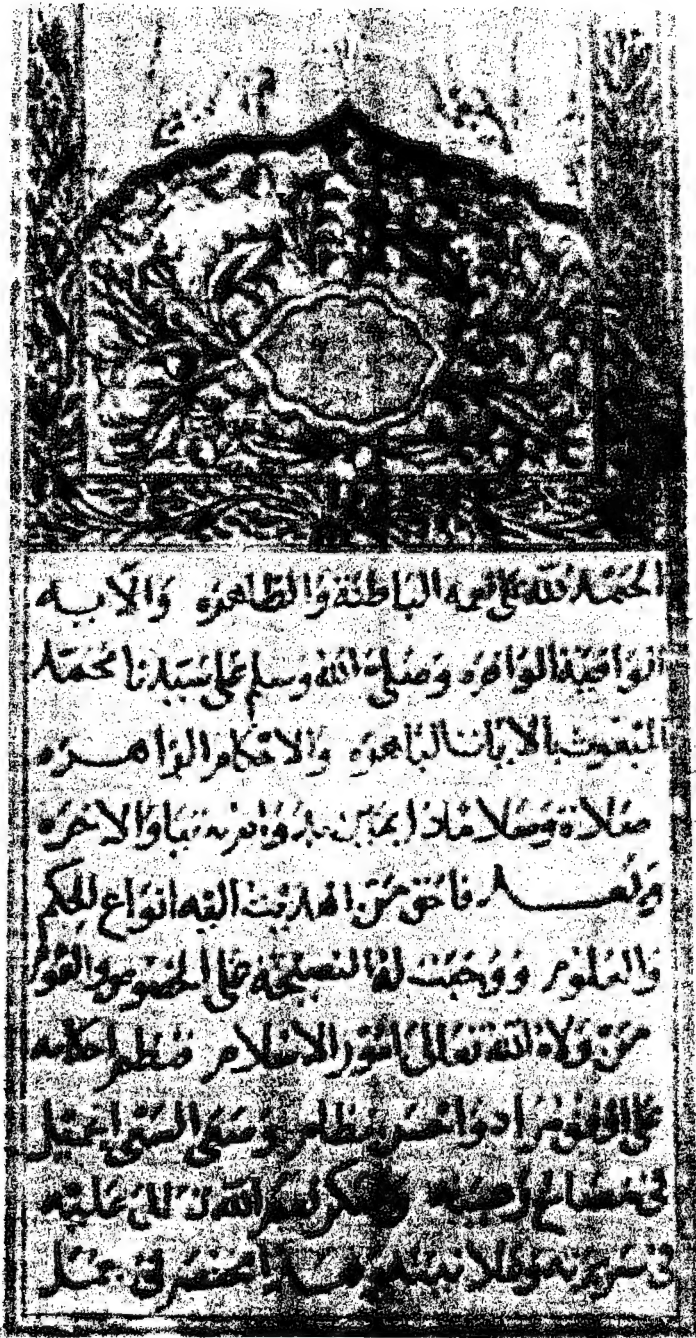 الحمد لله على نعمه الباطنة والظاهره وآلايه
الوافية الوافره وصلى الله وسلم على سيدنا محمد
المبعوث بالايات الباهره والاحكام الزاهره
صلاة وسلاما دايمين في الدنيا والاخره
وبعد فاحق من اهديت اليه انواع الحكم
والعلوم ووجبت له النصيحة على الخصوص والعموم
من ولاه الله تعالى امور الاسلام فنظم احكامه
على اقوم مراد واحسن نظام وسعى السعي الجميل
في مصالح وشكر نعم الله تعالى عليه
في سريرته وعلانيته وهذا مختصر في جمل